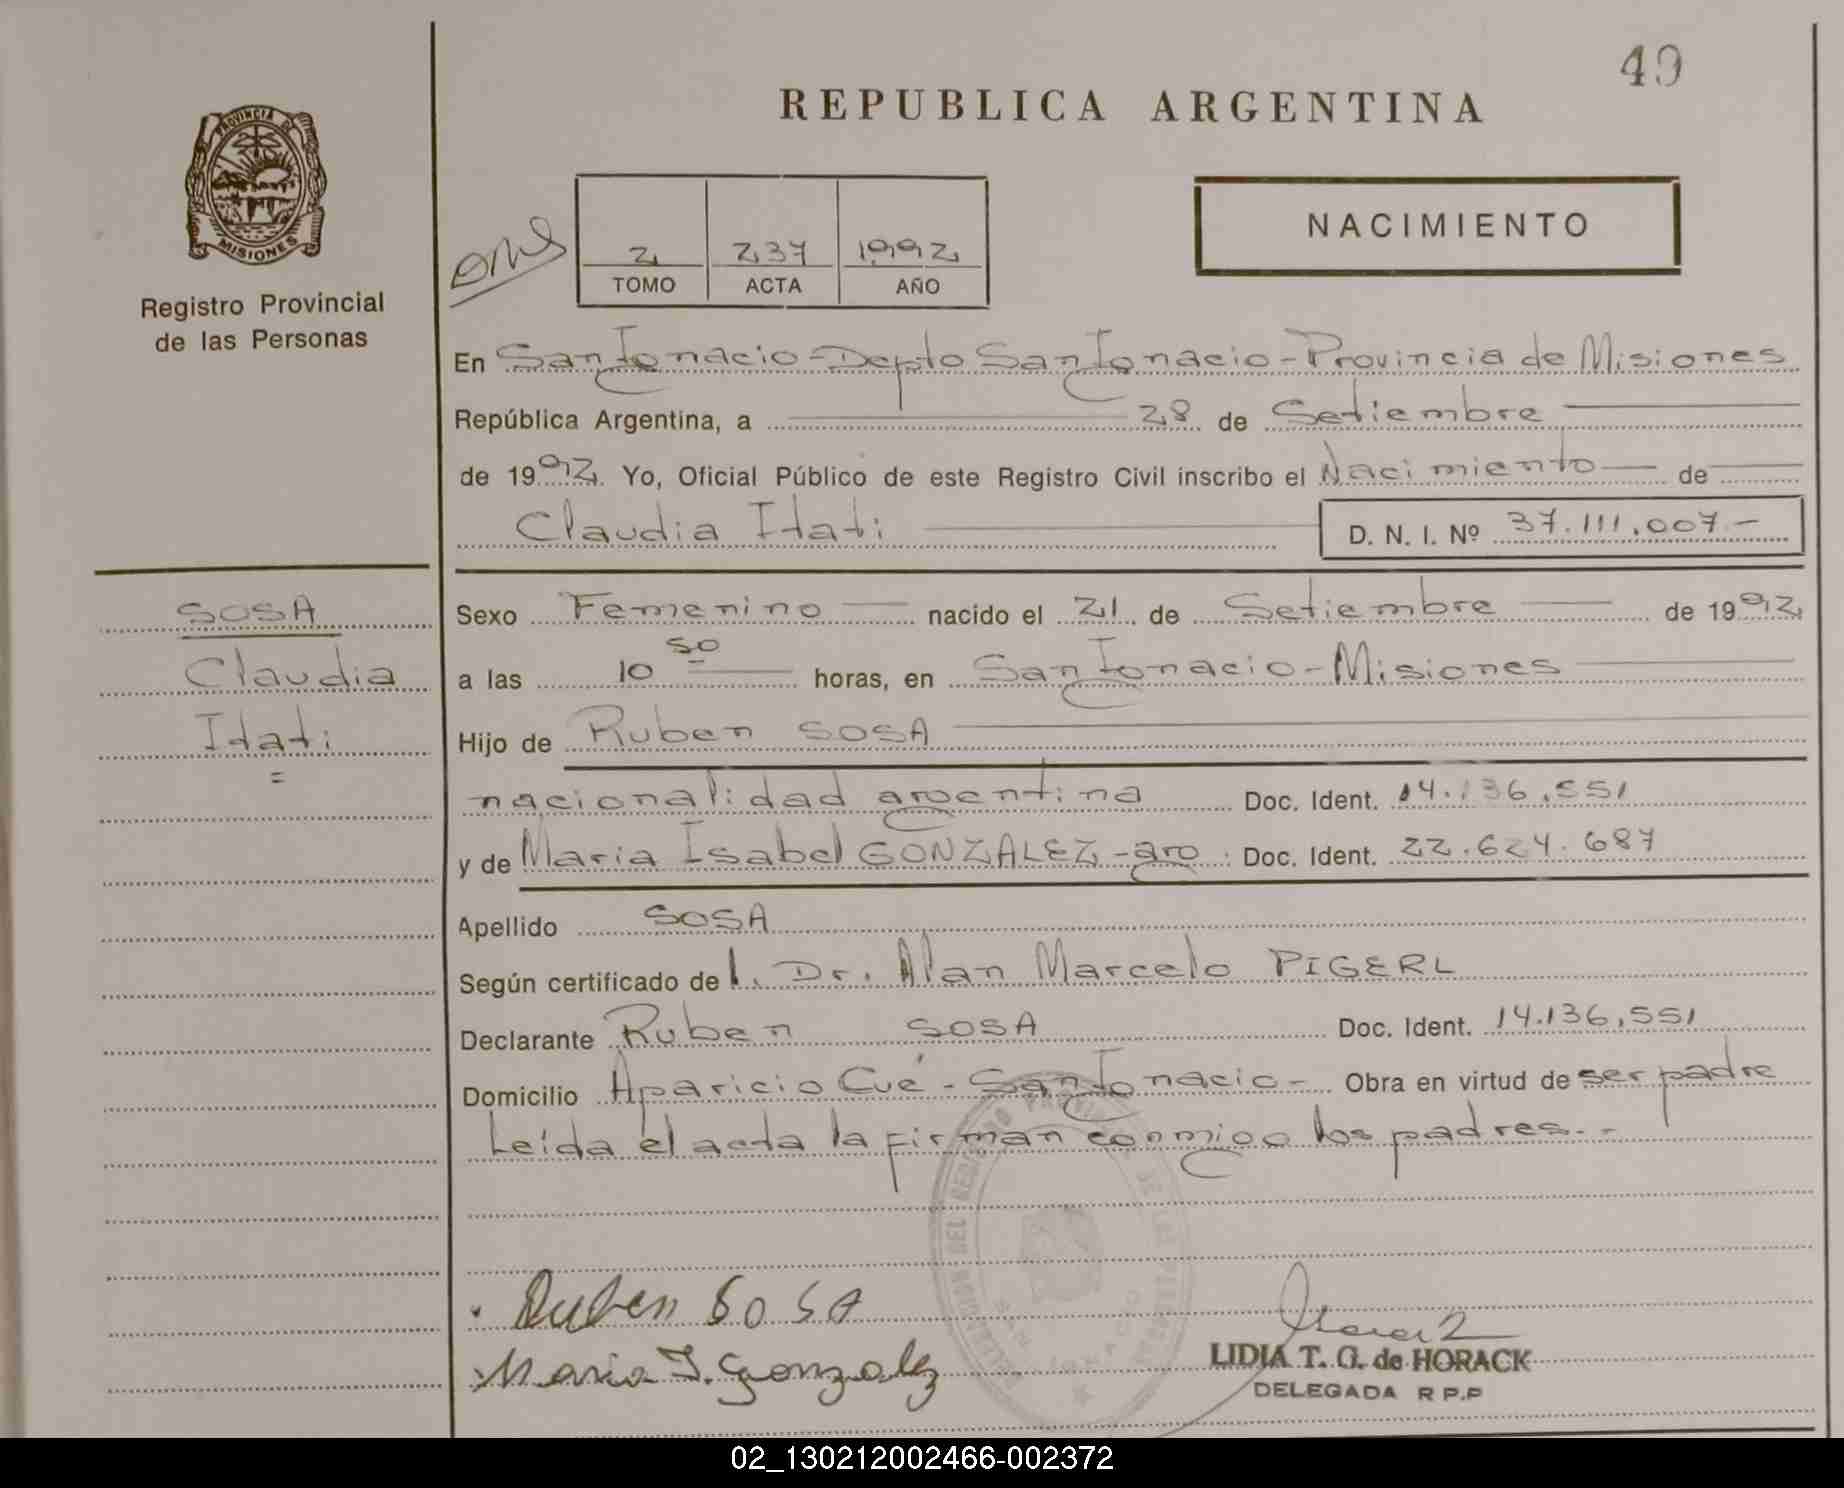 49
REPUBLICA ARGENTINA
PROVINCIA DE MISIONES
Registro Provincial
de las Personas
2 237 1992
TOMO ACTA AÑO
NACIMIENTO
En San Ignacio - Depto San Ignacio - Provincia de Misiones
República Argentina, a 28 de Setiembre
de 1992. Yo, Oficial Público de este Registro Civil inscribo el Nacimiento de
Claudia Itati D. N. I. Nº 37.111.007 -
SOSA
Claudia
Itati
=
Sexo Femenino nacido el 21 de Setiembre de 1992
a las 10 50 horas, en San Ignacio - Misiones
Hijo de Ruben SOSA
nacionalidad argentina Doc. Ident. 14.136.551
y de Maria Isabel GONZALEZ - arg. Doc. Ident. 22.624.687
Apellido SOSA
Según certificado de l. Dr. Alan Marcelo PIGERL
Declarante Ruben SOSA Doc. Ident. 14.136.551
Domicilio Aparicio Cué - San Ignacio - Obra en virtud de ser padre
Leída el acta la firman conmigo los padres. -
Ruben SOSA
Maria I. Gonzalez
LIDIA T. G. de HORACK
DELEGADA R P.P
02_130212002466-002372